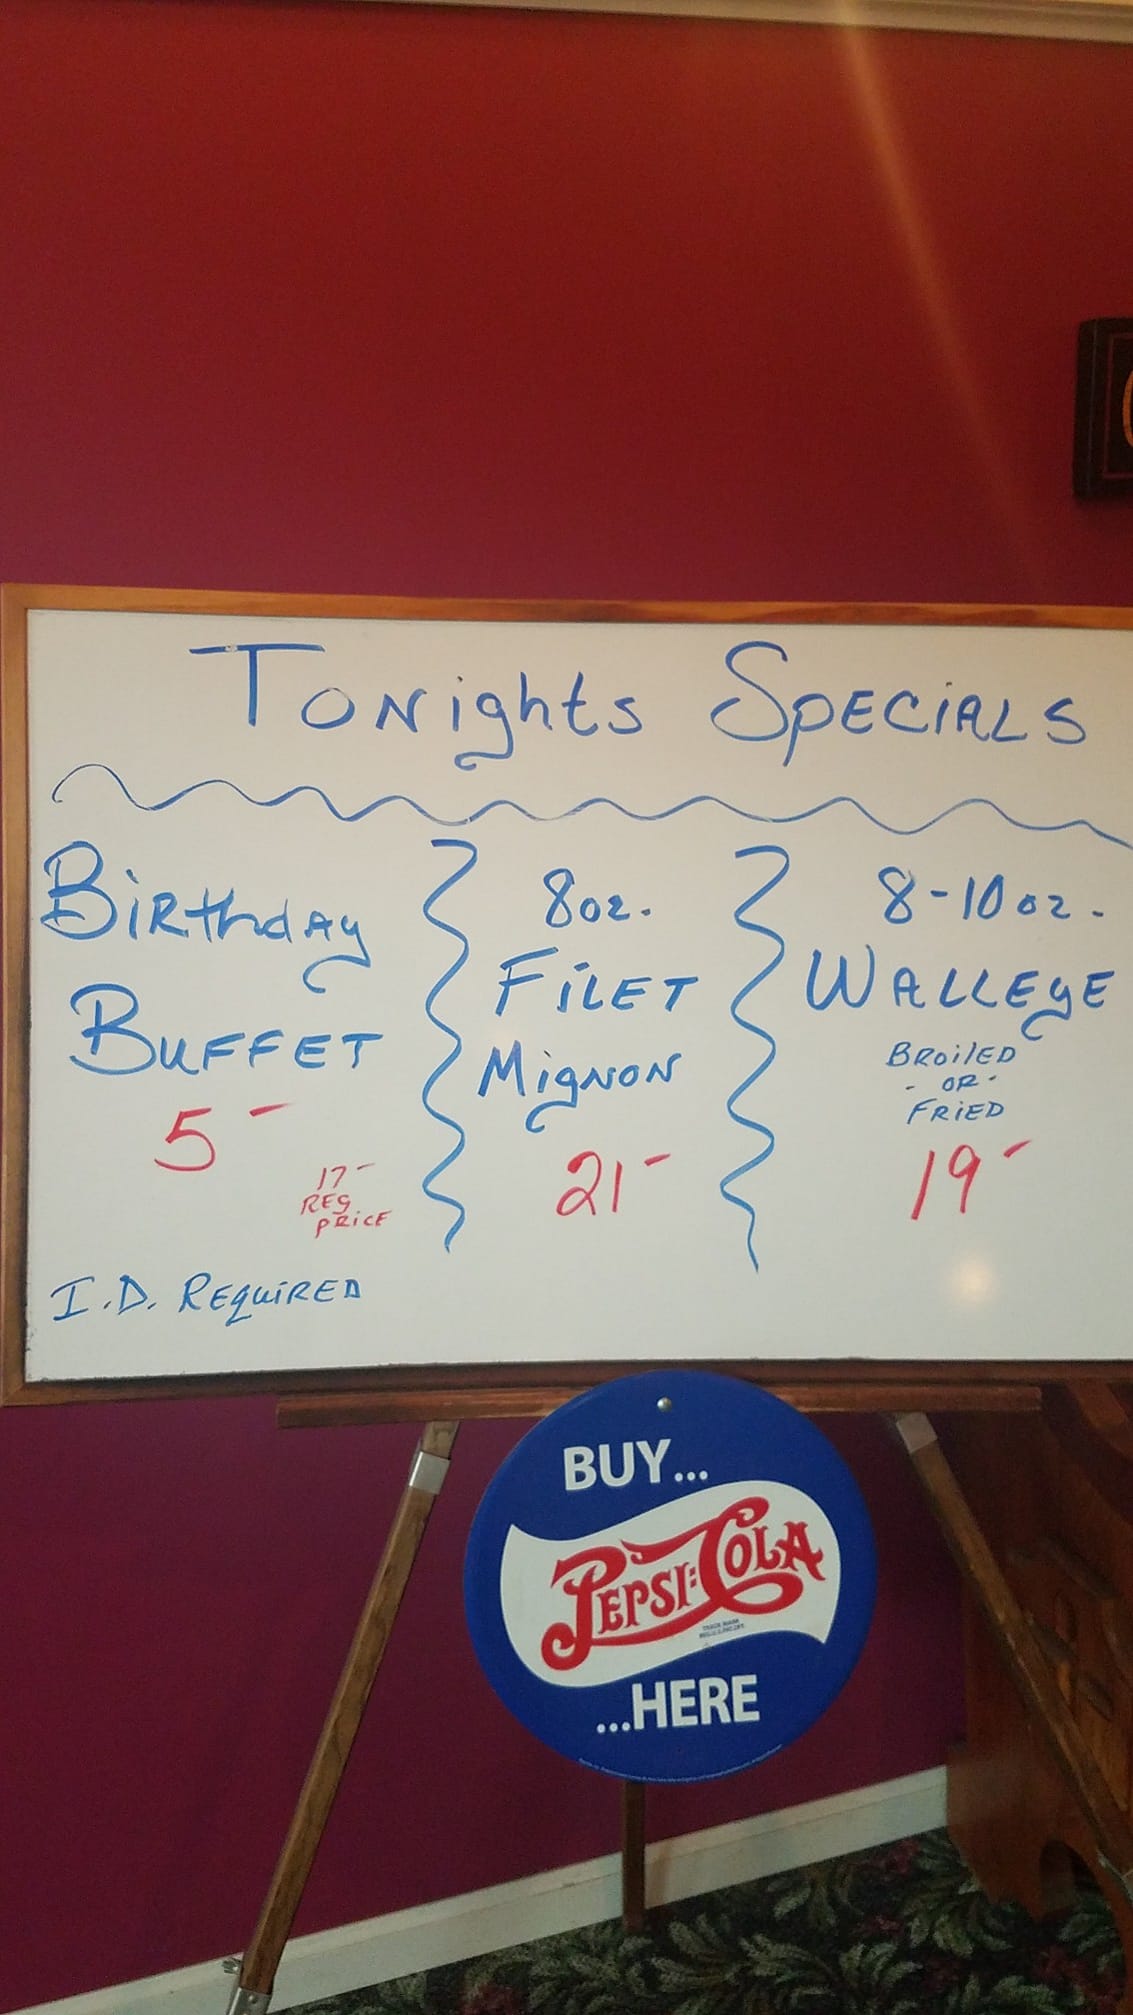 Tonights Specials
Birthday
Buffet
5-
17-
Reg
Price
I.D. Required
8oz.
Filet
Mignon
21-
8-10oz.
Walleye
Broiled
-or-
Fried
19-
BUY...
PEPSI-COLA
...HERE